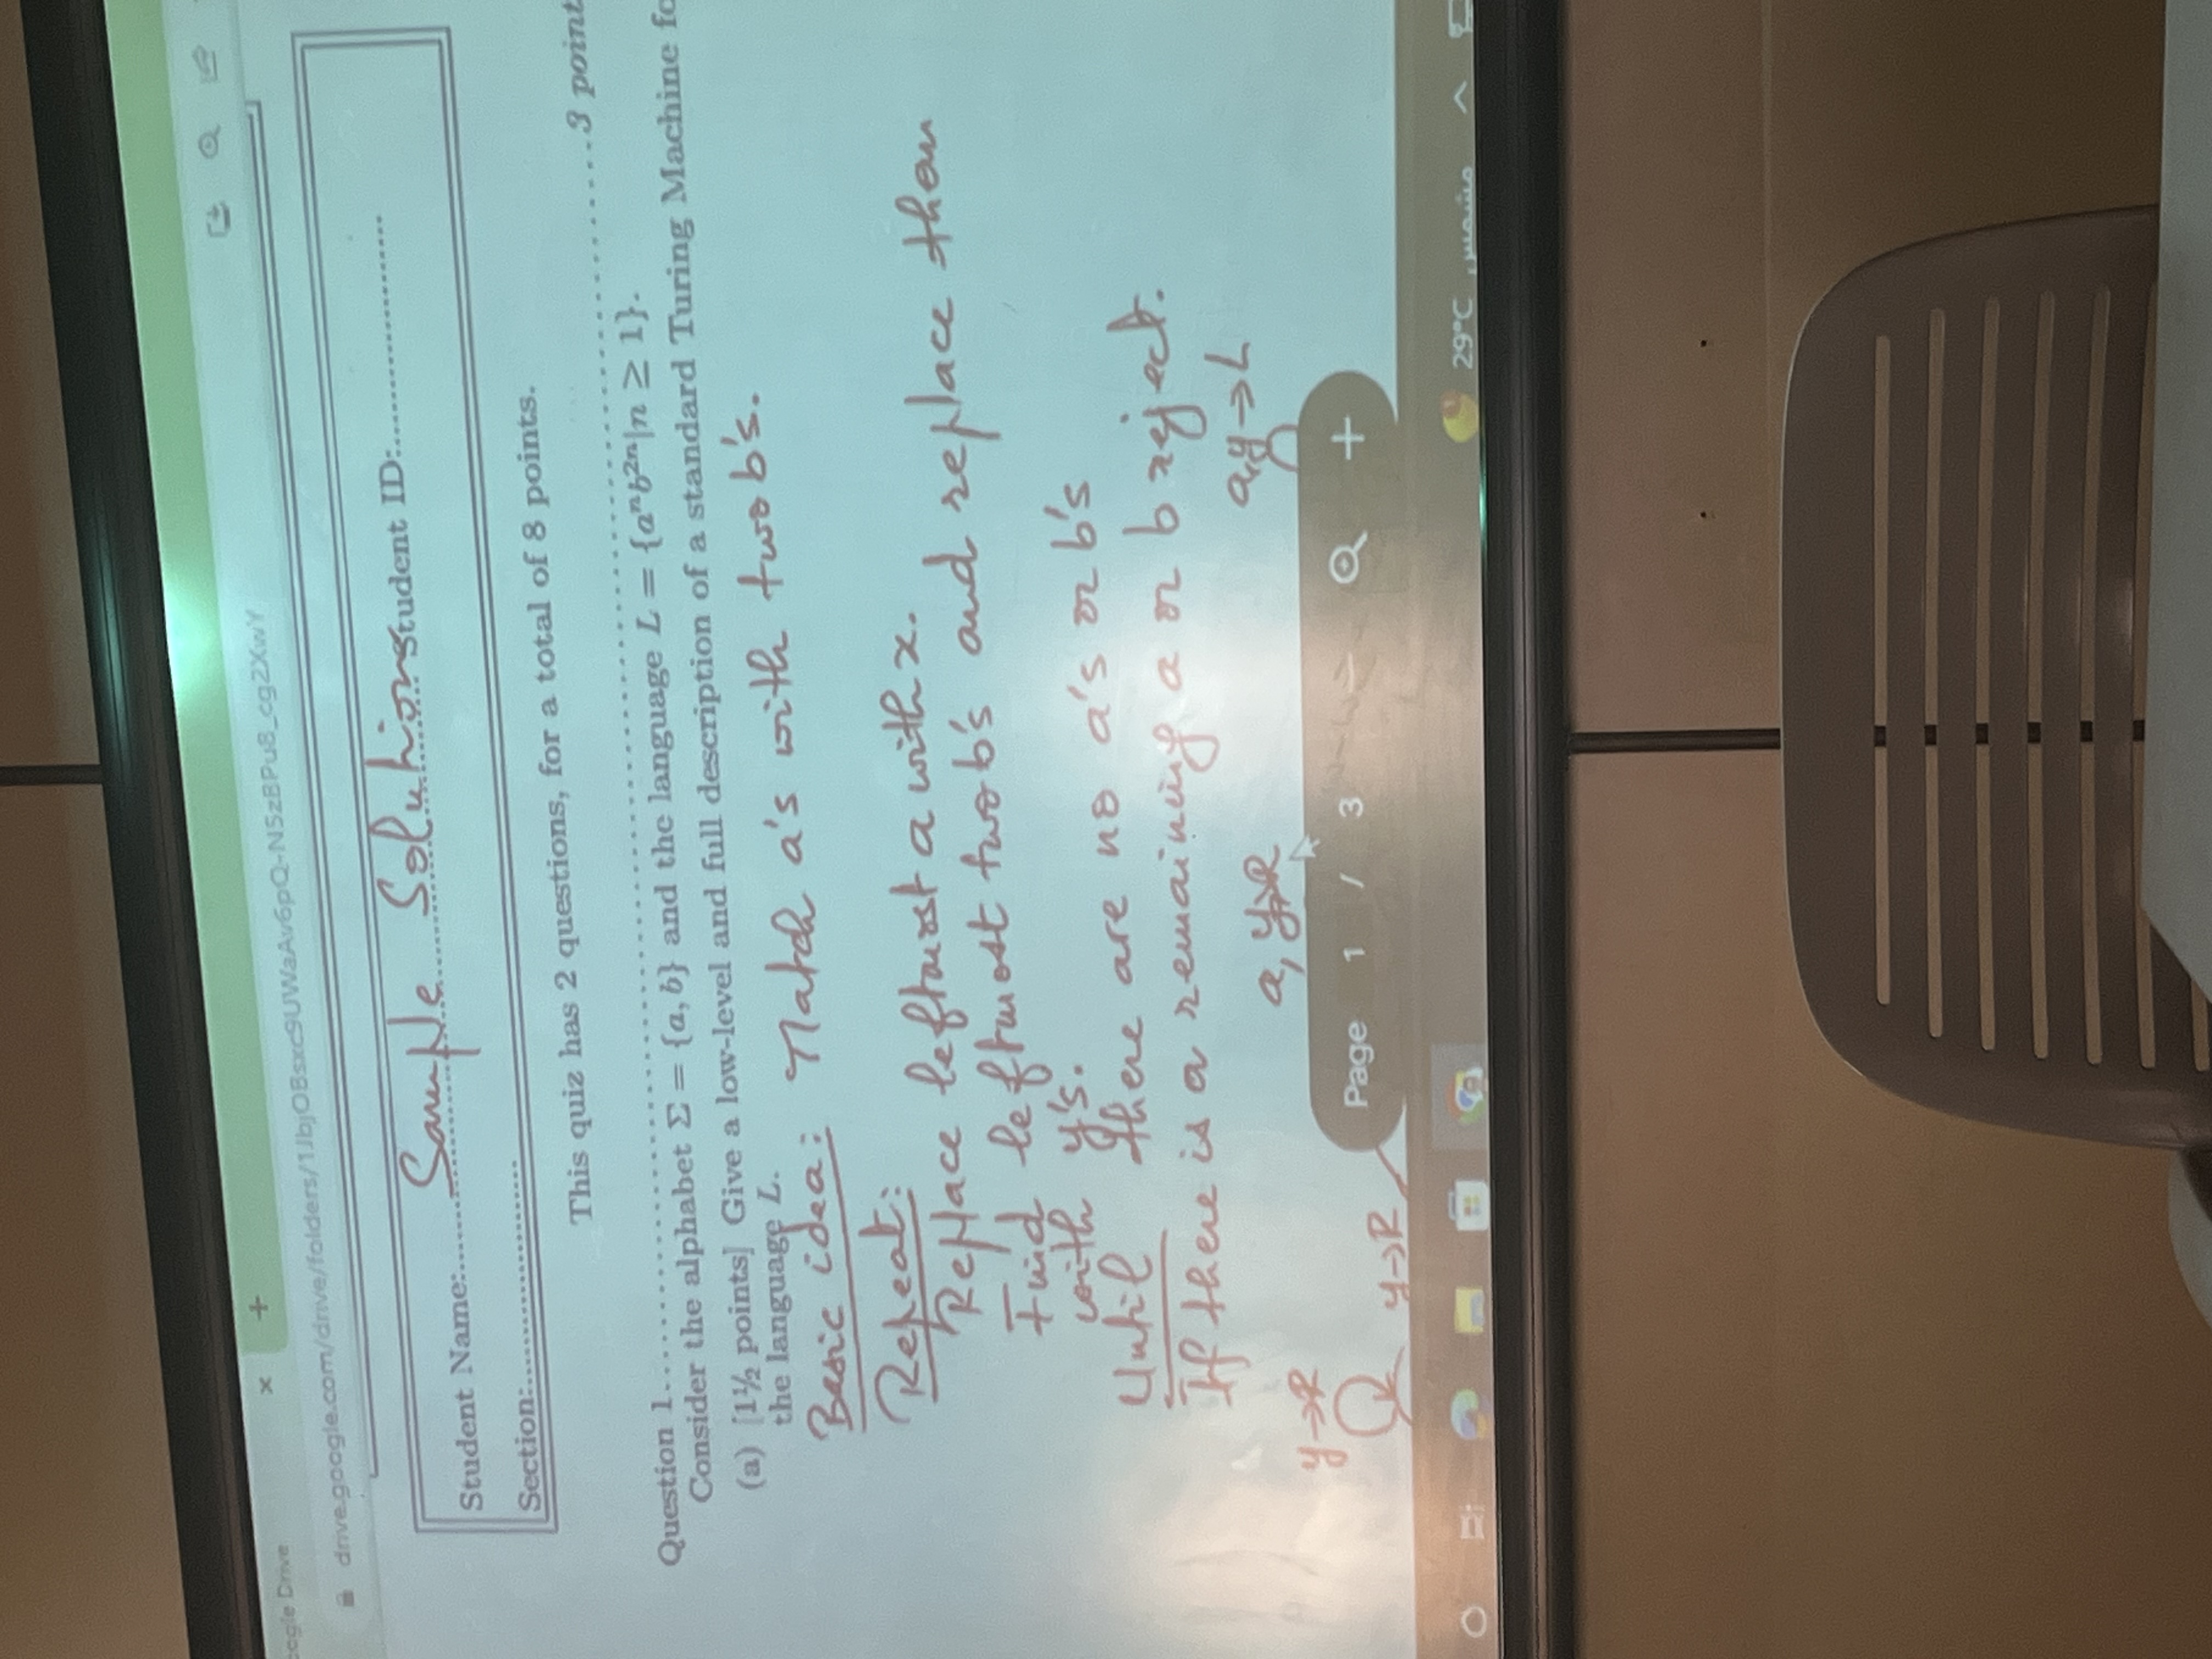 Drive
drive.google.com/drive/folders/1JbjOBsxc9UWaAv6pQ-N5zBPu8_cg2XwY
Student Name:.......... Sample Solutions Student ID:..........
Section:..........
This quiz has 2 questions, for a total of 8 points.
Question 1..........3 point
Consider the alphabet Σ = {a, b} and the language L = {aⁿb²ⁿ|n ≥ 1}.
(a) [1½ points] Give a low-level and full description of a standard Turing Machine fo
the language L.
Basic idea: Match a's with two b's.
Repeat:
Replace leftmost a with x.
Find leftmost two b's and replace them
with y's.
Until there are no a's or b's
If there is a remaining a or b reject.
a, y→R
a,y→L
y→R
y→R
Page 1 / 3
29°C مشمس